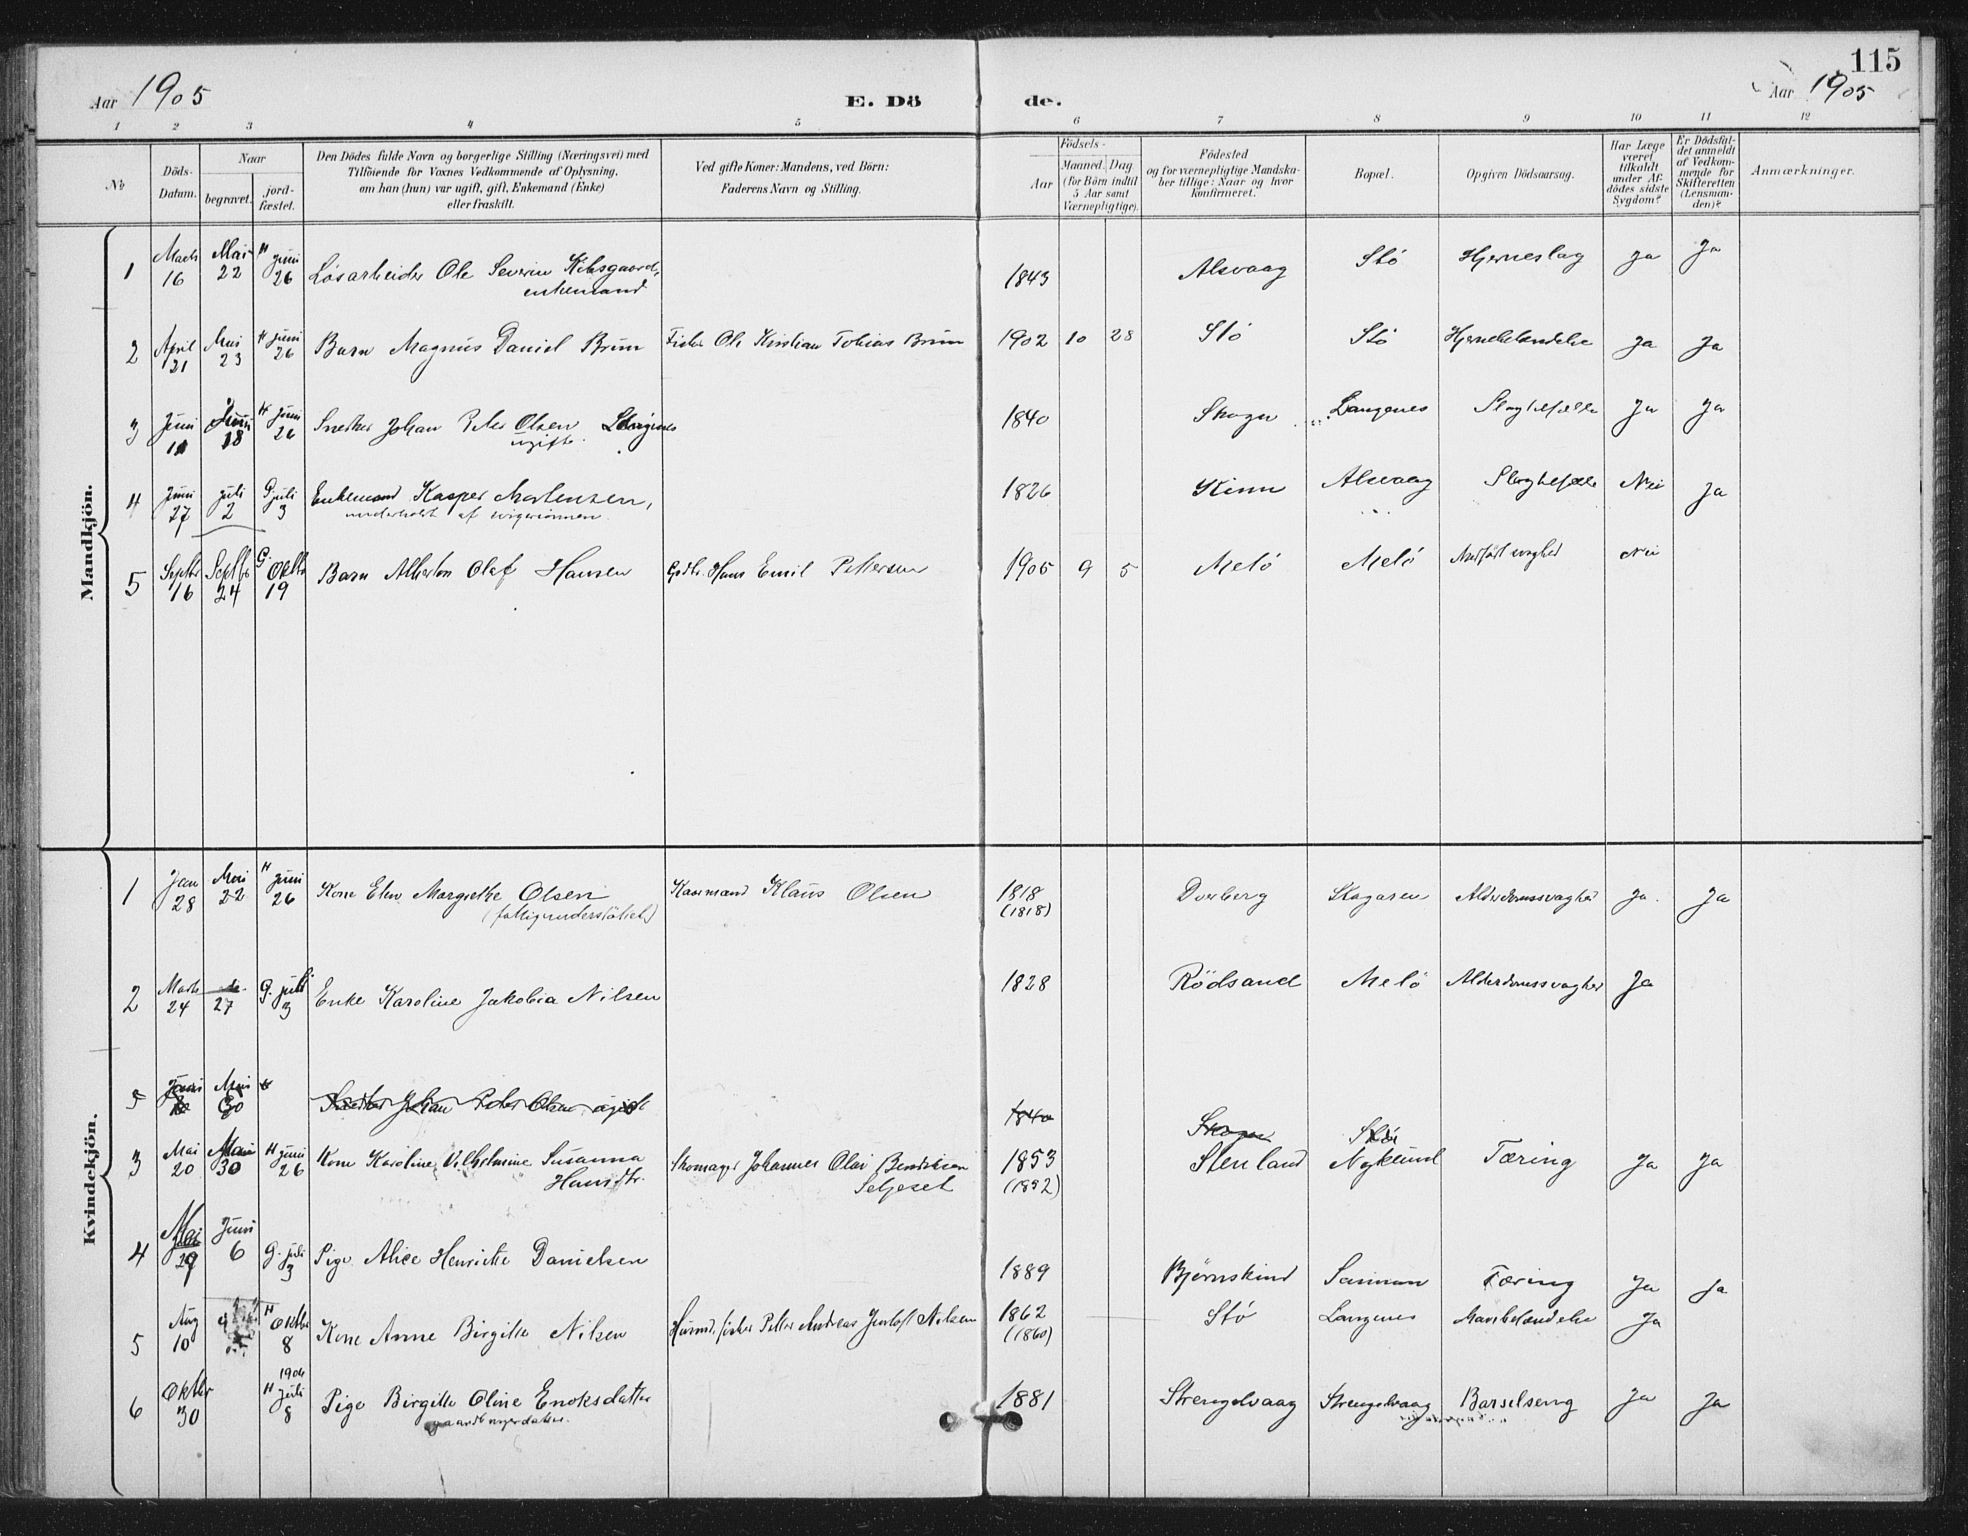 115
Aar 1905
E. Dö
de.
Aar 1905
1 2 3 4 5 6 7 8 9 10 11 12
№
Döds-
Datum.
Naar
begravet.
jord-
fæstet.
Den Dödes fulde Navn og borgerlige Stilling (Næringsvei) med
Tilföiende for Voxnes Vedkommende af Oplysning,
om han (hun) var ugift, gift, Enkemand (Enke)
eller fraskilt.
Ved gifte Koner: Mandens, ved Börn:
Faderens Navn og Stilling.
Födsels-
Aar
Maaned. Dag
(for Börn indtil
5 Aar samt
Værnepligtige).
Födested
og for værnepligtige Mandska-
ber tillige: Naar og hvor
konfirmeret.
Bopæl.
Opgiven Dödsaarsag.
Har Læge
været
tilkaldt
under Af-
dödes sidste
Sygdom?
Er Dödsfal-
det anmeldt
af Vedkom-
mende for
Skifteretten
(Lensman-
den)?
Anmærkninger.
Mandkjön.
1 Marts 16 Mai 22 H Juni 26 Løsarbeider Ole Severin 1843 Alsvaag Stö Hjerneslag Ja Ja
enkemand
2 April 21 Mai 23 H Juni 26 Barn Magnus Daniel Brun Fisker Ole Kristian Tobias Brun 1902 10 28 Stö Stö Hjernebetændelse Ja Ja
3 Juni Juni 18 H Juni 26 Snedker Johan Peter Olsen 1840 Skogn Langenes Slagtilfælde Ja Ja
ugift
4 Juni 27 Juli 2 G Juli 3 Enkemand Kasper Mortensen, 1826 Kinn Alsvaag Slagtilfælde Nei Ja
underholdt af svigersønnen
5 Septbr 16 Septbr 24 G. Oktbr 19 Barn Olaf Hansen Hans Emil Pettersen 1905 9 5 Melö Melö Medfödt svaghed Nei
Kvindekjön.
1 Jan 28 Mai 22 H Juni 26 Kone Elen Margrethe Olsen Klaus Olsen 1818 Skogsøen Alderdomssvaghed Ja. Ja
(fattigunderstöttet) (1818)
2 Marts 24 27 G. Juli 3 Enke Karoline Jakobia Nilsen 1828 Rödsand Melö Alderdomssvaghed Ja
Mai 30 H Snedker Johan Peter Olsen, ugift 1840 Skogn Stö
3 Mai 20 Mai 30 H Juni 26 Kone Karoline Vilhelmine Susanna Skomager Johannes Olai Bendiksen 1853 Stenland Nyksund Tæring Ja Ja
Hansdtr. Seljeset (1852)
4 Mai Juni 6 G. Juli 3 Pige Alice Henriette Danielsen 1889 Bjørnskind Tæring Ja Ja
5 Aug 10 H Oktbr 8 Kone Anne Birgitte Nilsen Petter Andreas Nilsen 1862 Stö Langenes Ja
(1860)
6 Oktbr 30 H 1906 Juli 8 Pige Birgitte Oline Enoksdatter 1881 Strengelvaag Strengelvaag Barselseng Ja Ja
gaardbrugerdatter.